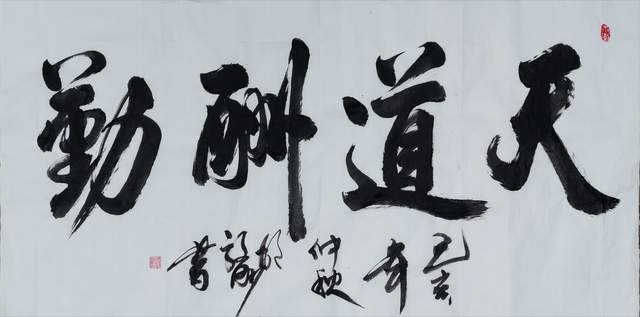 天道酬勤
己亥年仲秋胡
書